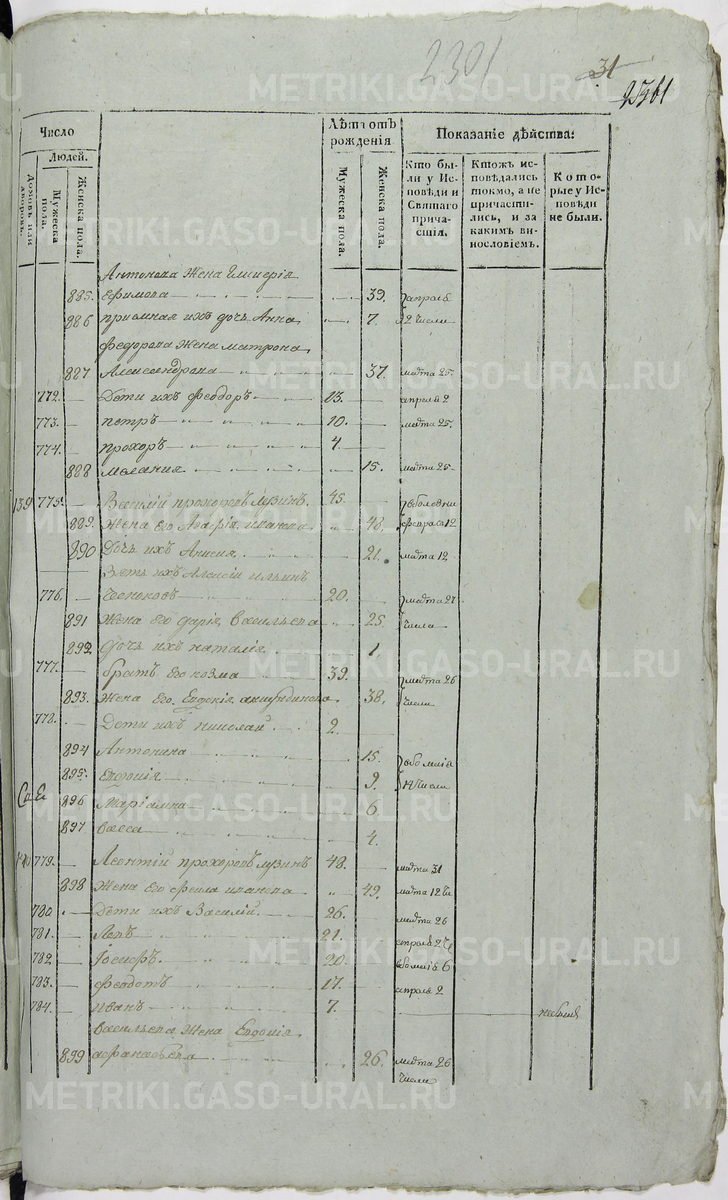 2301
31
Число
Людей.
Домовъ или дворовъ.
Мужеска пола.
Женска пола.
Лѣтъ отъ рожденія
Мужеска пола.
Женска пола.
Показаніе дѣйства:
Кто были у Исповѣди и Святаго причастія.
Ктожъ исповѣдались токмо, а не причастились, и за какимъ винословіемъ.
Которые у Исповѣди не были.
Антонова Жена Гликерія
885. Ефимова 39. апреля
886 приемная ихъ дочь Анна 7. 12 числа
Федорова Жена матрона
887 Александрова 37. марта 25.
772. Дети ихъ Феодоръ 13. апреля 2
773. петръ 10. марта 25.
774. прохоръ 4.
888 мелания 15. марта 25
139 775. Василій прохоровъ Лузинъ 45.
889. Жена его Агафія иванова 48. февраля 12
890 Дочь ихъ Анисия 21. марта 12
Зять ихъ Алексій ильинъ
776. 20. марта 27
891 Жена его дарія васильева 25 числа
892. Дочь ихъ наталія 1
777. братъ его козма 39. марта 26
893. Жена его Евдокія 38. числа
778. Дети ихъ николай 2.
894 Антонина 15.
895. Евдокія 9. числа
896 Маріамна 6
897 васса 4.
140 779. Леонтій прохоровъ лузинъ 48. марта 31
898 Жена его фекла иванова 49. марта 12
780 Дѣти ихъ Василій 26. марта 26
781. Левъ 21. апреля
782. Іосифъ 20. 6
783. феодотъ 17. апреля 2
784. иванъ 7. небылъ
васильева Жена Евдокія
899 афанасьева 26. марта 26
числа
METRIKI.GASO-URAL.RU